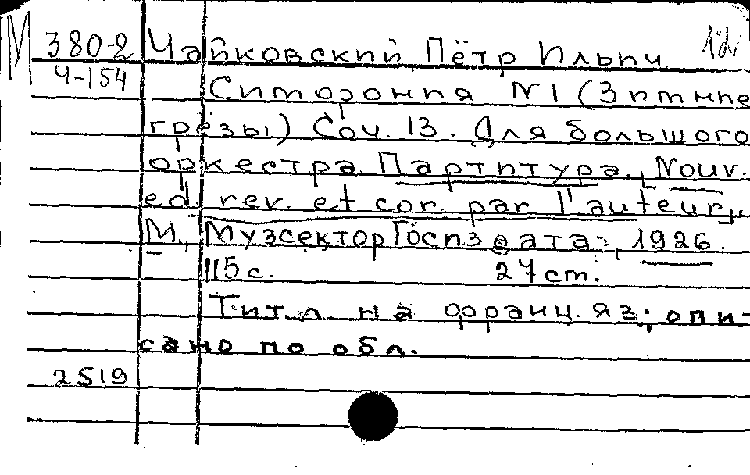 М 380-2 Чайковский Пётр Ильич
Ч-154
Симфония N1 (Зимние
грёзы) Соч. 13. Для большого
оркестра. Партитура., Nouv.
ed. rev. et cor. par l'auteur,
М., Музсектор Госиздата, 1926.
115с. 27 cm.
Тит. л. на франц. яз; опи-
сано по обл.
2519